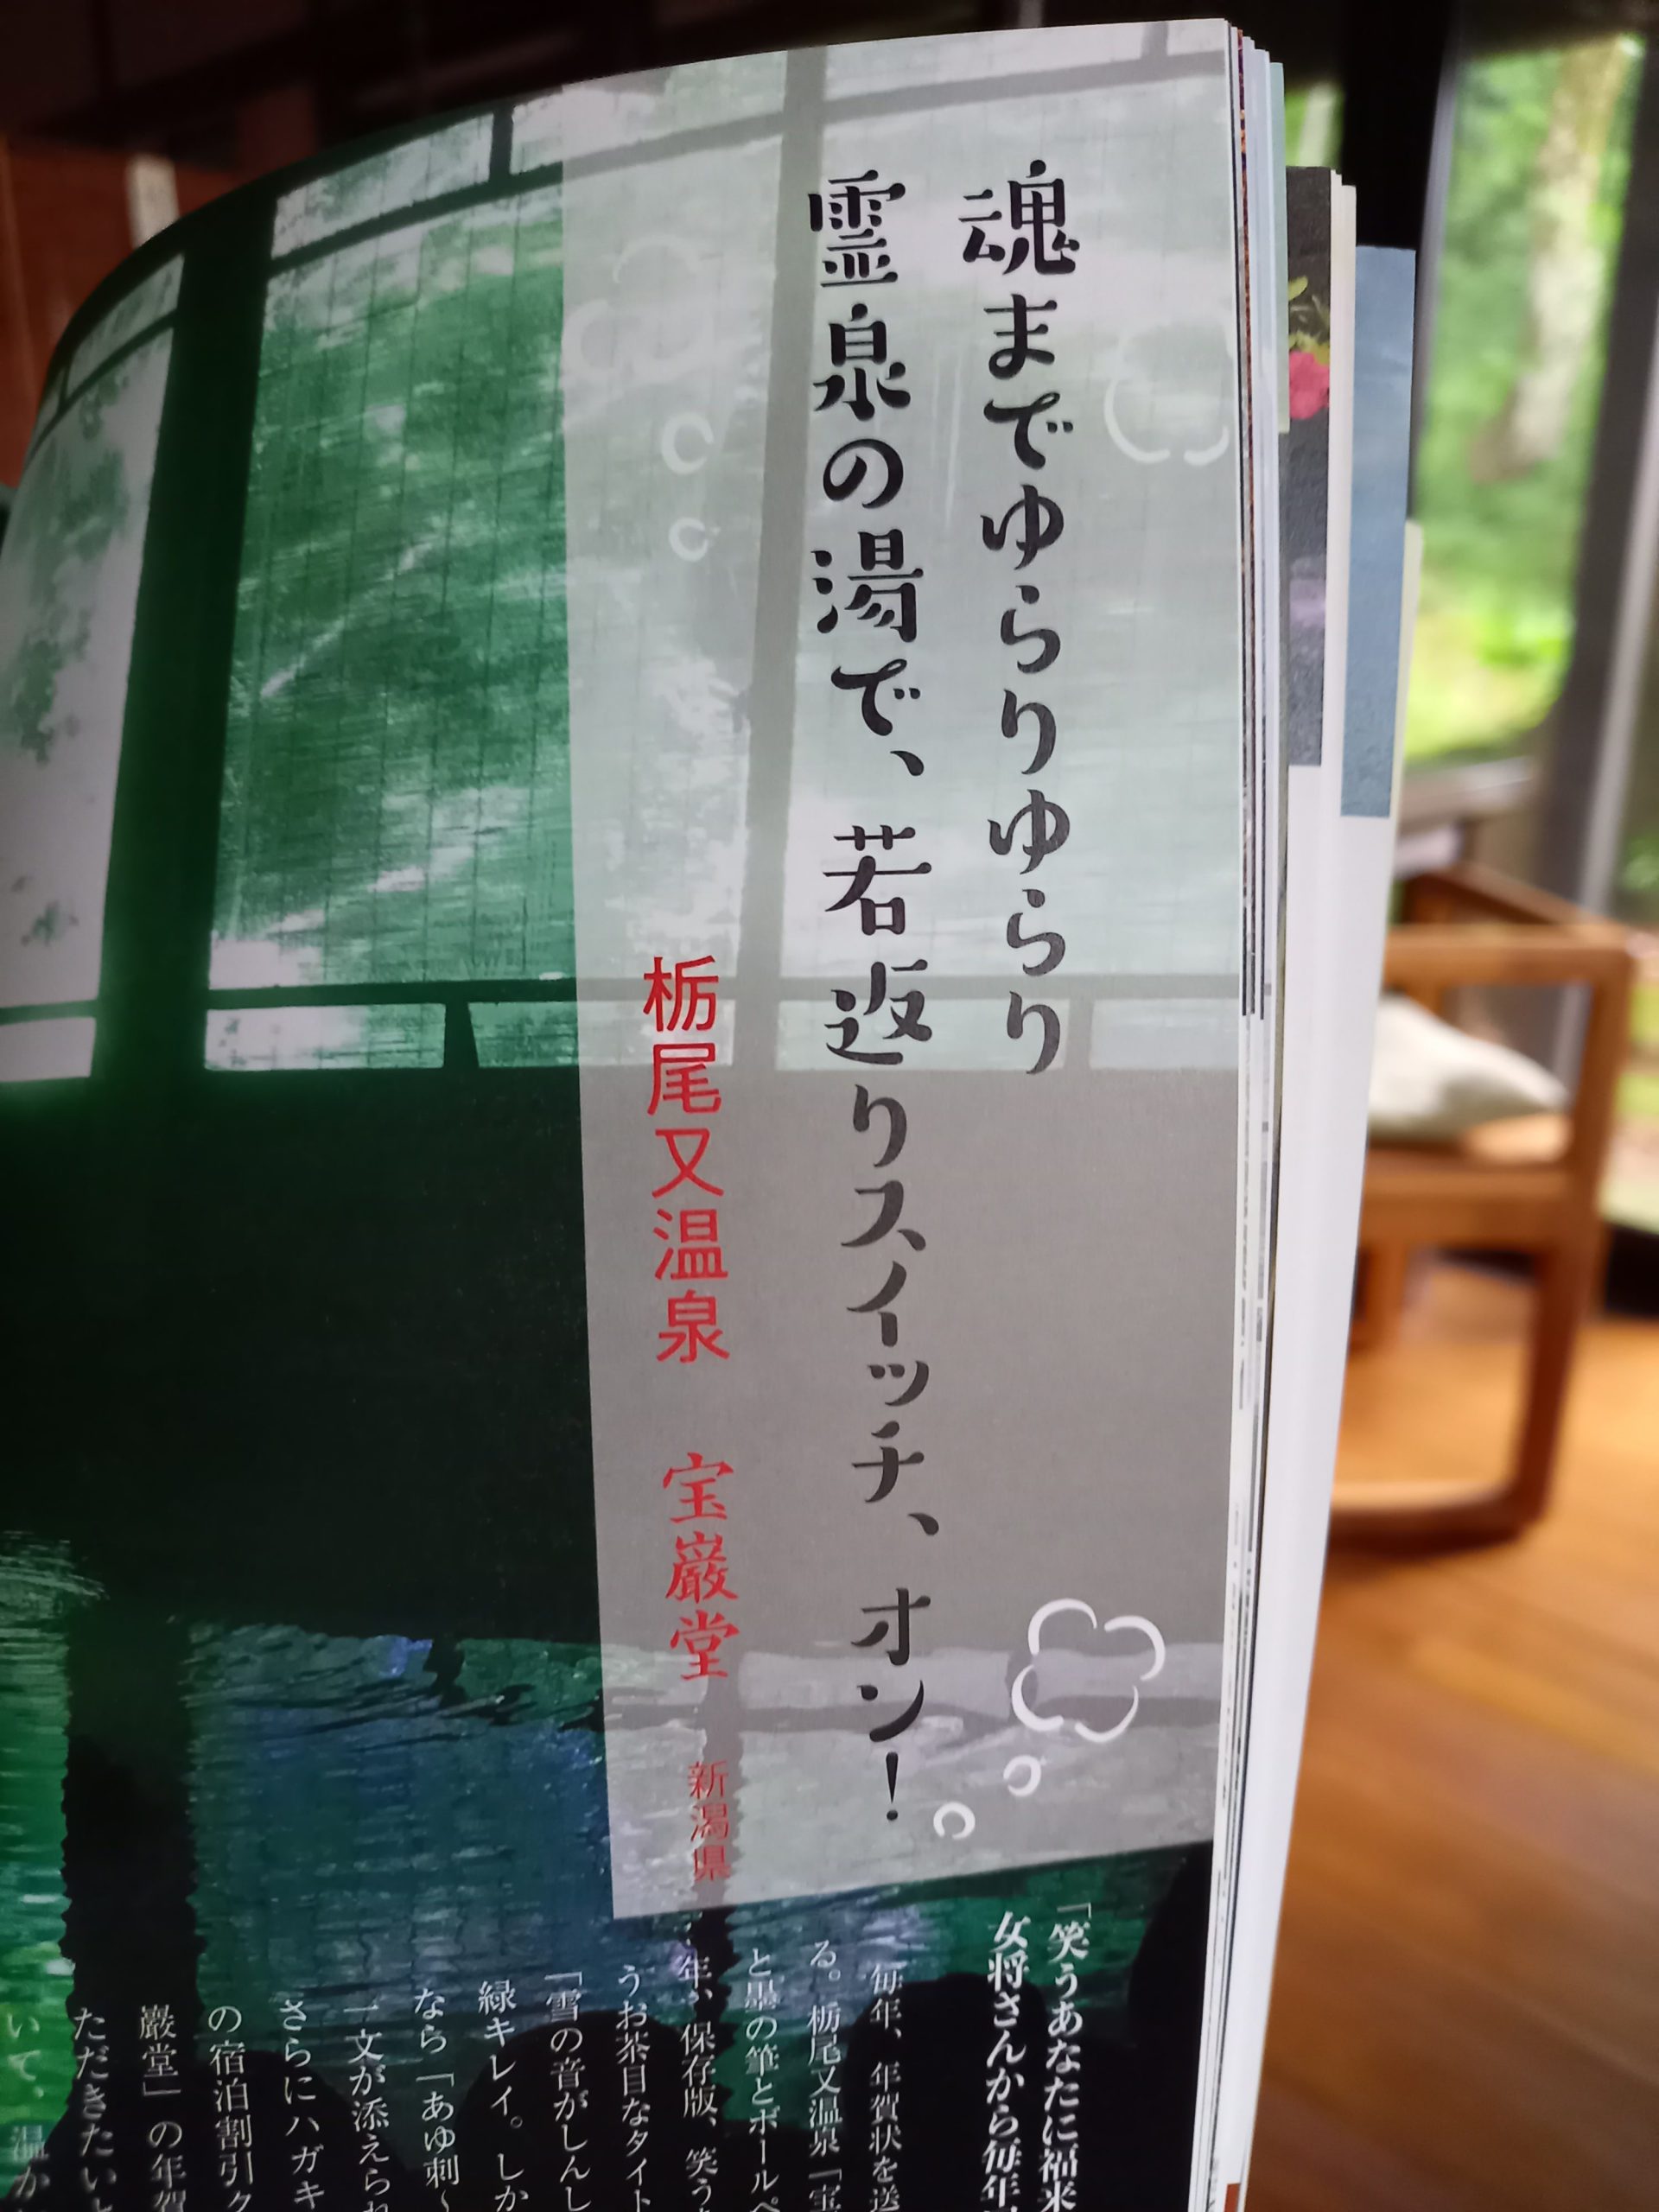 魂までゆらりゆらり
霊泉の湯で、若返りスイッチ、オン！
栃尾又温泉 宝巌堂 新潟県
「笑うあなたに福来
女将さんから毎年
毎年、年賀状を送
る。栃尾又温泉「宝
と墨の筆とボールペ
年、保存版、笑う
うお茶目なタイト
「雪の音がしんし
緑キレイ。しか
なら「あゆ刺〜
一文が添えられ
さらにハガキ
の宿泊割引ク
巌堂」の年賀
ただきたい
いて、温か